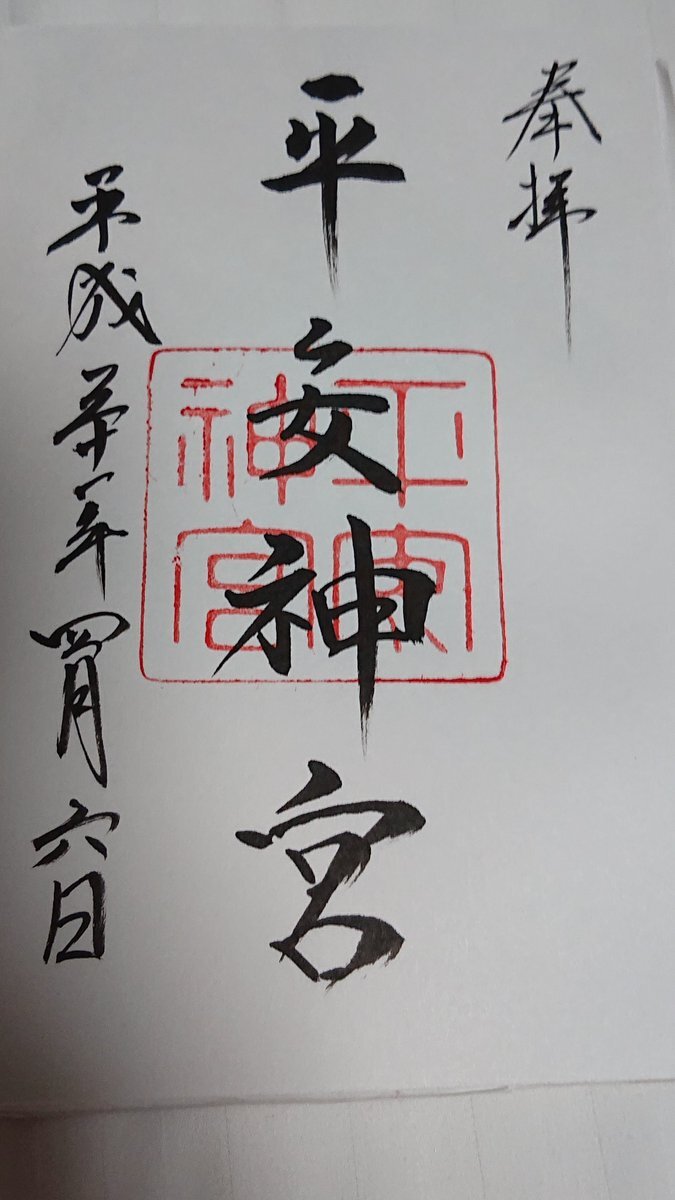 奉拝
平安神宮
平安神宮
平成三十一年四月六日